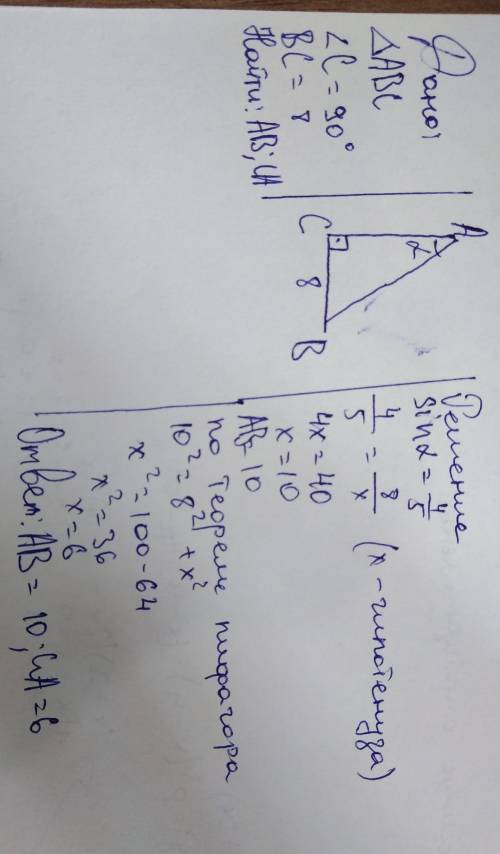 Дано:
△ABC
∠C = 90°
BC = 8
Найти: AB; CA
A
α
C
8
B
Решение
sinα = 4/5
4/5 = 8/x (x - гипотенуза)
4x = 40
x = 10
AB = 10
по теореме пифагора
10² = 8² + x²
x² = 100 - 64
x² = 36
x = 6
Ответ: AB = 10; CA = 6